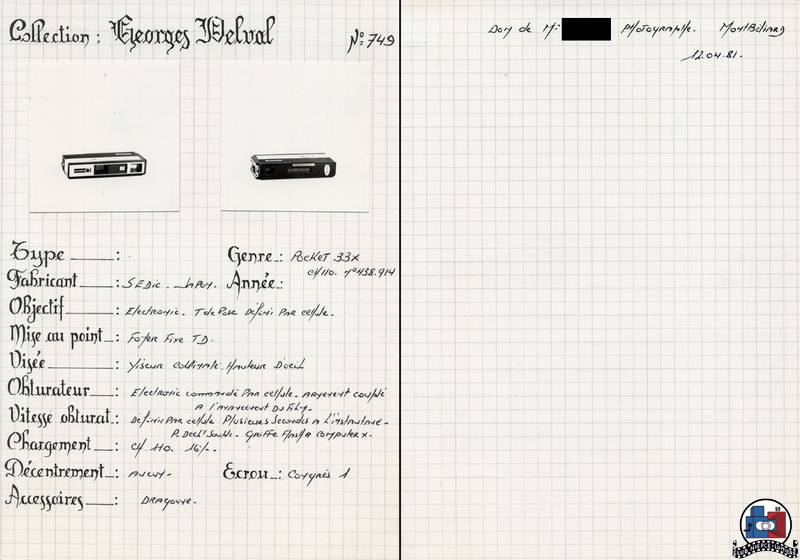 Collection : Georges Delval
Nº 749
Type : .
Genre : Pocket 33x
c/110. nº438.914
Fabricant : SEDIC.
Année :
Objectif : Electronic. T de Pose Définis Par cellule.
Mise au point : Foyer Fixe T.D.
Visée : Viseur Collimaté. Hauteur D'oeil
Obturateur : Electronic commandé Par cellule. Armement couplé
A l'avancement Du Film.
Vitesse obturat : Définis Par cellule Plusieurs Secondes A l'instantané.
P. Decl' Souple. Griffe Flash Computer X.
Chargement : C/. 110. 16/.
Décentrement : Aucun.
Ecrou : Congrès 1
Accessoires : Dragonne.
Don de Mr Photographe. Montbéliard
12.04.81.